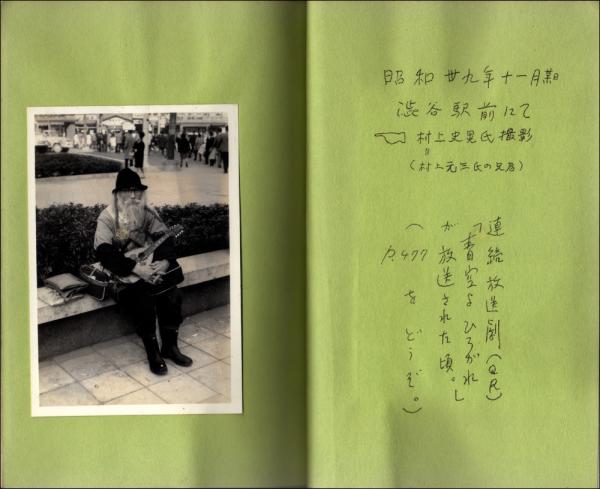 昭和廿九年十一月某日
渋谷駅前にて
村上史晃氏撮影
〃
(村上元三氏の)
連続放送劇(QR)
「青空よひろがれ」
が放送された頃。
(P.477をどうぞ。)